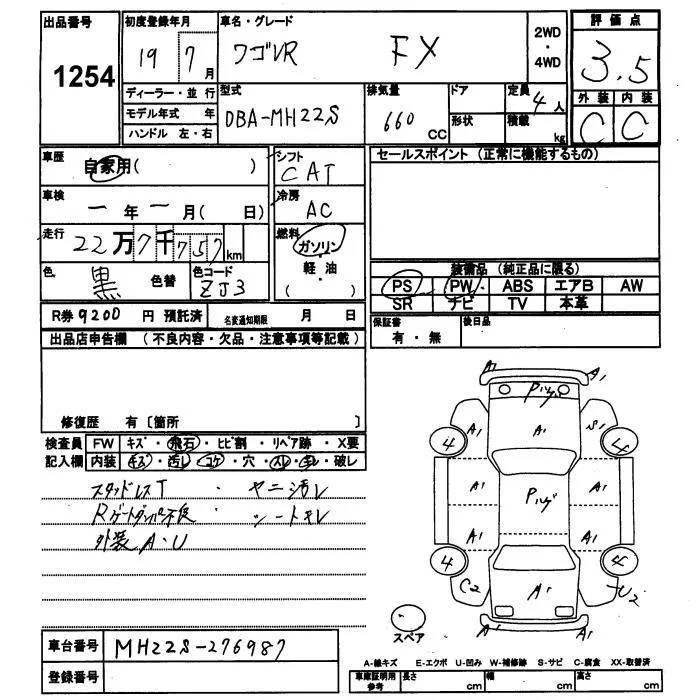 出品番号 初度登録年月 車名・グレード 2WD ・ 4WD 評価点
1254 19 7月 ワゴンR FX 3.5
ディーラー・並行 型式 排気量 ドア 定員 4人 外装 内装
モデル年式 年 DBA-MH22S 660CC 形状 積載 kg C C
ハンドル 左・右
車歴 自家用( ) シフト CAT セールスポイント (正常に機能するもの)
車検 ー年ー月( 日) 冷房 AC
走行 22万7千757km 燃料 ガソリン・軽・油 ( )
色 黒 色替 色コード ZJ3
装備品 (純正品に限る)
PS PW ABS エアB AW
SR ナビ TV 本革
R券 9200 円 預託済 名変通知期限 月 日
保証書 有・無 後日品
出品店申告欄 (不良内容・欠品・注意事項等記載)
修復歴 有〔箇所 〕
検査員 FW キズ・飛石・ヒビ割・リペア跡・X要
記入欄 内装 キズ・汚レ・コゲ・穴・スレ・キレ・破レ
スタッドレスT ・ヤニ汚レ
Rゲートダンパ不良 ・シートキレ
外装A・U
A1 A1
A1 S1
4 4
A1 A1
A1 A1
4 4
C2 A1 U2
A1 A1
スペア
車台番号 MH22S-276987
登録番号
A-線キズ E-エクボ U-凹み W-補修跡 S-サビ C-腐食 XX-取替済
車庫証明用参考 長さ cm 幅 cm 高さ cm